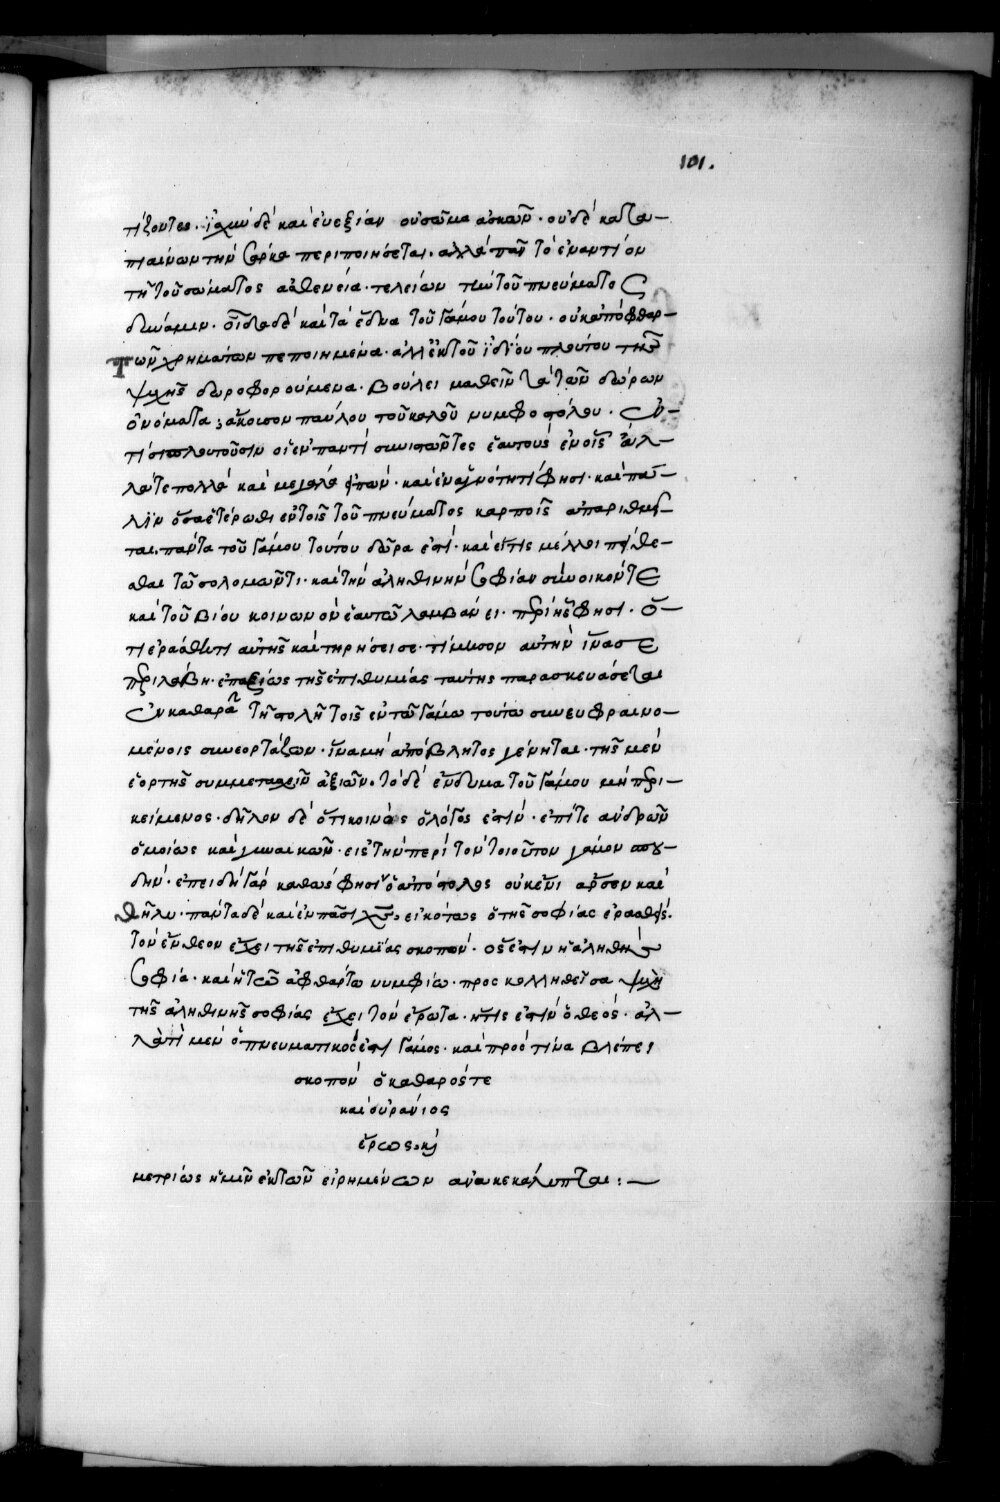 101.
τίζοντες. ἰσχὺν δὲ καὶ εὐεξίαν οὐ σῶμα ἀσκῶν. οὐδὲ κατα-
πιαίνων τὴν σάρκα περιποιήσεται. ἀλλὰ πᾶν τὸ ἐναντίον
τῆ τοῦ σώματος ἀσθενεία. τελειῶν τὴν τοῦ πνεύματος
δύναμιν. οἶδα δὲ καὶ τὰ ἕδνα τοῦ γάμου τούτου. οὐκ ἀπὸ φθαρ-
τῶν χρημάτων πεποιημένα. ἀλλ' ἐκ τοῦ ἰδίου πλούτου τῆς
ψυχῆς δωροφορούμενα. βούλει μαθεῖν τὰ τῶν δώρων
ὀνόματα; ἄκουσον παύλου τοῦ καλοῦ νυμφοστόλου. ἐν
τίσι πλουτοῦσιν οἱ ἐν παντὶ συνιστῶντες ἑαυτοὺς ἐν οἷς ἄλ-
λα τε πολλὰ καὶ μεγάλα εἰπών. καὶ ἐν ἁγνότητι φησι. καὶ πά-
λιν ὅσα ἑτέρωθι ἐν τοῖς τοῦ πνεύματος καρποῖς ἀπαριθμεῖ-
ται. πάντα τοῦ γάμου τούτου δῶρα ἐστί. καὶ εἴ τις μέλλοι πείθε-
σθαι τῶ σολομῶντι. καὶ τὴν ἀληθινὴν σοφίαν σύνοικόν τε
καὶ τοῦ βίου κοινωνὸν ἑαυτῶ λαμβάνει. περὶ ἧς φησι. ὅ-
τι ἐράσθητι αὐτῆς καὶ τηρήσει σε. τίμησον αὐτὴν ἵνα σε
περιλάβη. ἐπαξίως τῆς ἐπιθυμίας ταύτης παρασκευάσεται
ἐν καθαρᾶ τῆ στολῆ τοῖς ἐν τῶ γάμω τούτω συνευφραινο-
μένοις συνεορτάζων. ἵνα μὴ ἀπόβλητος γένηται. τῆς μὲν
ἑορτῆς συμμετασχεῖν ἀξιῶν. τὸ δὲ ἔνδυμα τοῦ γάμου μὴ περι-
κείμενος. δῆλον δὲ ὅτι κοινὸς ὁ λόγος ἐστίν. ἐπί τε ἀνδρῶν
ὁμοίως καὶ γυναικῶν. εἰς τὴν περὶ τὸν τοιοῦτον γάμον σπου-
δήν. ἐπειδὴ γάρ καθώς φησὶν ὁ ἀπόστολος οὐκ ἔνι ἄρσεν καὶ
θῆλυ. πάντα δὲ καὶ ἐν πᾶσι χς. εἰκότως ὁ τῆς σοφίας ἐρασθεὶς.
τὸν ἔνθεον ἔχει τῆς ἐπιθυμίας σκοπόν. ὅς ἐστιν ἡ ἀληθὴς
σοφία. καὶ ἡ τῶ ἀφθάρτω νυμφίω. προσκολληθεῖσα ψυχὴ
τῆς ἀληθινῆς σοφίας ἔχει τὸν ἔρωτα. ἥτις ἐστὶν ὁ θεός. ἀλ-
λὰ τί μὲν ὁ πνευματικός ἐστι γάμος. καὶ πρὸς τίνα βλέπει
σκοπὸν ὁ καθαρός τε
καὶ οὐράνιος
ἔρως. κὶ
μετρίως ἡμῖν ἐκ τῶν εἰρημένων ἀνακεκάλυπται :—